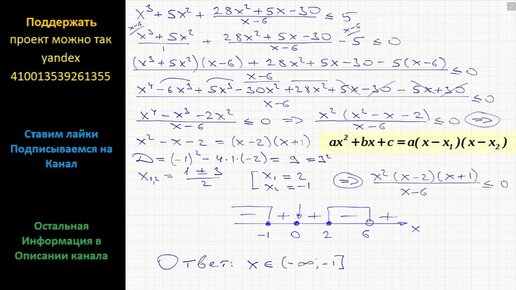 Поддержать
проект можно так
yandex
410013539261355
Ставим лайки
Подписываемся на
Канал
Остальная
Информация в
Описании канала
x³ + 5x² + (28x² + 5x - 30)/(x-6) ≤ 5
(x-6) x³ + 5x²/1 + (28x² + 5x - 30)/(x-6) - 5 (x-6) ≤ 0
((x³ + 5x²)(x-6) + 28x² + 5x - 30 - 5(x-6))/(x-6) ≤ 0
(x⁴ - 6x³ + 5x³ - 30x² + 28x² + 5x - 30 - 5x + 30)/(x-6) ≤ 0
(x⁴ - x³ - 2x²)/(x-6) ≤ 0 ⇒ x²(x² - x - 2)/(x-6) ≤ 0 ⇒
x² - x - 2 = (x-2)(x+1)
ax² + bx + c = a(x - x₁)(x - x₂)
D = (-1)² - 4·1·(-2) = 9 = 3²
x₁,₂ = (1 ± 3)/2 [ x₁ = 2 x₂ = -1 ⇒ x²(x-2)(x+1)/(x-6) ≤ 0
- + + - +
-1 0 2 6 x
Ответ: x ∈ (-∞; -1]